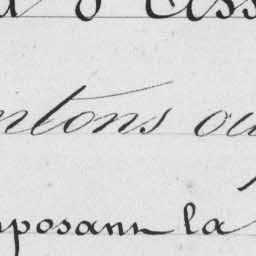 d'Ass
ntons ou
mposant la